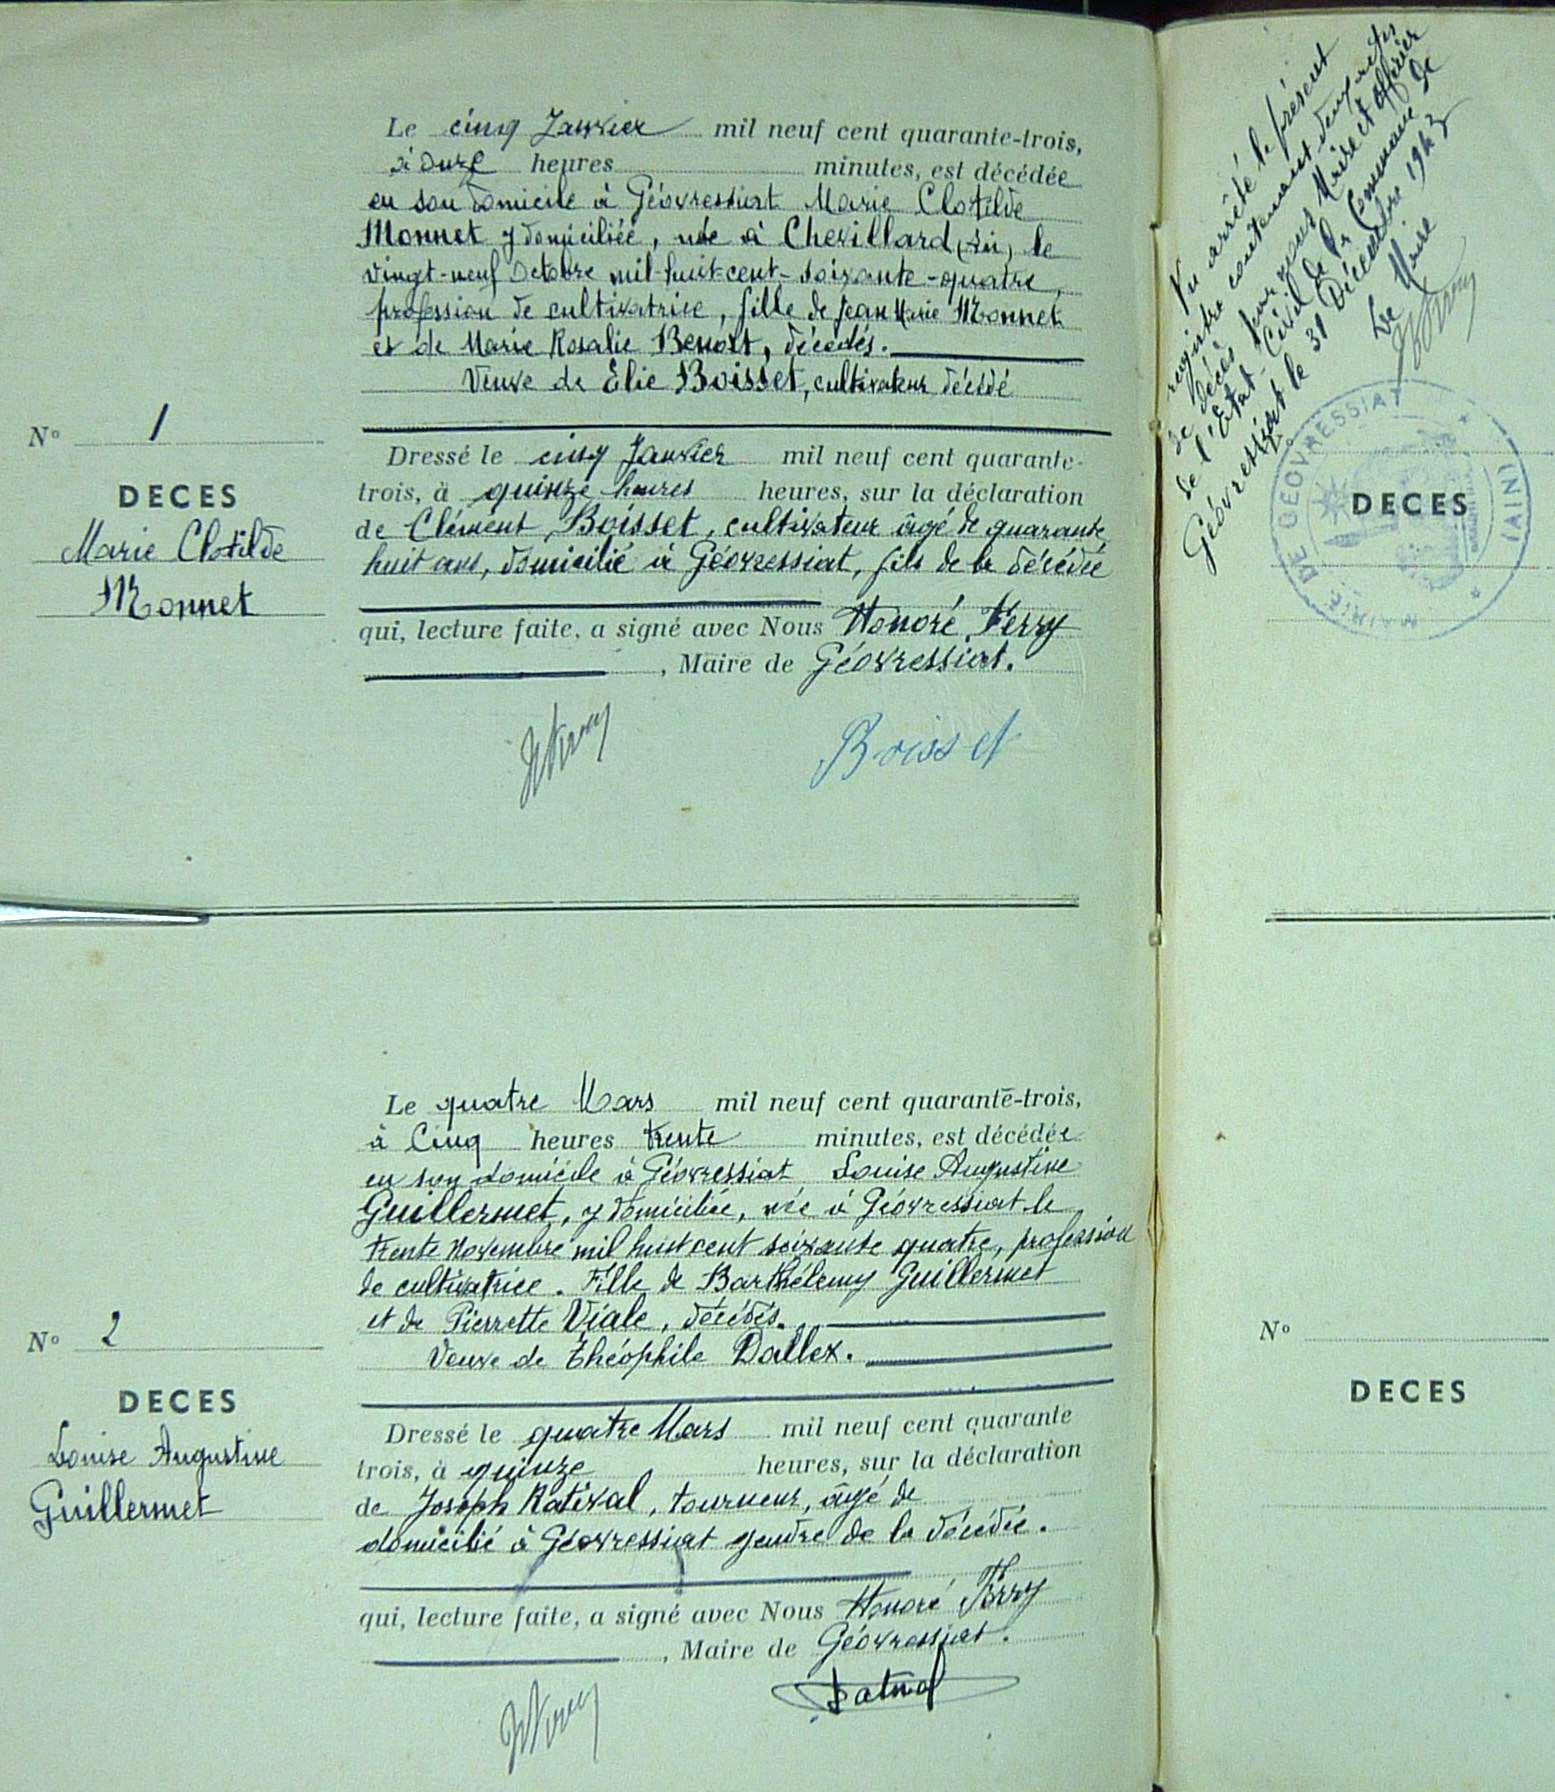 Le cinq Janvier mil neuf cent quarante-trois,
à onze heures minutes, est décédée
en son domicile à Géovressiat Marie Clotilde
Monnet y domiciliée, née à Chevillard (Ain) le
vingt-neuf Octobre mil-huit-cent-soixante-quatre,
profession de cultivatrice, fille de Jean Marie Monnet
et de Marie Rosalie Benoit, décédés.
Veuve de Elie Boisset, cultivateur décédé
N° 1
DECES
Marie Clotilde
Monnet
Dressé le cinq Janvier mil neuf cent quarante-
trois, à quinze heures heures, sur la déclaration
de Clément Boisset, cultivateur âgé de quarante
huit ans, domicilié à Géovressiat, fils de la décédée
qui, lecture faite, a signé avec Nous Honoré Ferry
, Maire de Géovressiat.
Boisset
Le quatre Mars mil neuf cent quarante-trois,
à Cinq heures trente minutes, est décédée
en son domicile à Géovressiat Louise Augustine
Guillermet, y domiciliée, née à Géovressiat le
trente Novembre mil huit cent soixante quatre, profession
de cultivatrice. Fille de Barthélemy Guillermet
et de Pierrette Viale, décédés.
Veuve de Théophile Dallex.
N° 2
DECES
Louise Augustine
Guillermet
Dressé le quatre Mars mil neuf cent quarante
trois, à quinze heures, sur la déclaration
de Joseph Ratival, tourneur, âgé de
domicilié à Géovressiat gendre de la décédée.
qui, lecture faite, a signé avec Nous Honoré Ferry
, Maire de Géovressiat.
Vu arrêté le présent
registre contenant deux actes
de décès par nous Maire et Officier
de l'Etat-Civil de la Commune de
Géovressiat le 31 Décembre 1943
Le Maire
MAIRIE DE GÉOVRESSIAT
(AIN)
DECES
N°
DECES